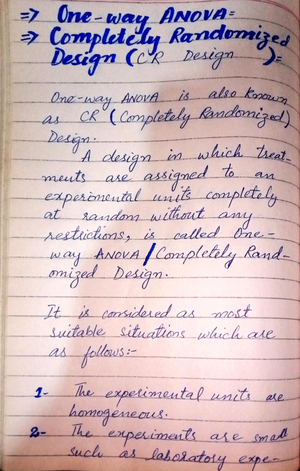 ⇒ One-way ANOVA:
⇒ Completely Randomized
Design (CR Design ):
One-way ANOVA is also known
as CR (Completely Randomized)
Design.
A design in which treat-
ments are assigned to an
experimental units completely
at random without any
restrictions, is called One-
way ANOVA/Completely Rand-
omized Design.
It is considered as most
suitable situations which are
as follows:-
1- The experimental units are
homogeneous.
2- The experiments are small
such as laboratory expe-